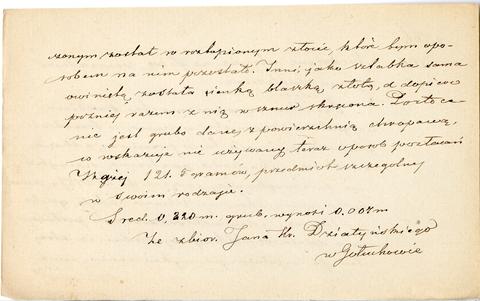 czonym został w roztopionym złocie, któr bym spo-
sobem na nim pozostało. Inni, jako sztabka sama
owinięta została cienką blaszką złotą, a dopiero
pozniej razem z nią w sznur skręcona. Pozłoca
nie jest grubo danej z powierzchnią chropawą,
co wskazuje nie używany teraz sposób pozłacań
Wazięj 121.5 gramów, przedmiot szczególny
w swoim rodzaju.
Sred. 0,220 m. grub. wynosi 0.007 m
Ze zbior. Jana Hr. Działyńskiego
w Gołuchowie